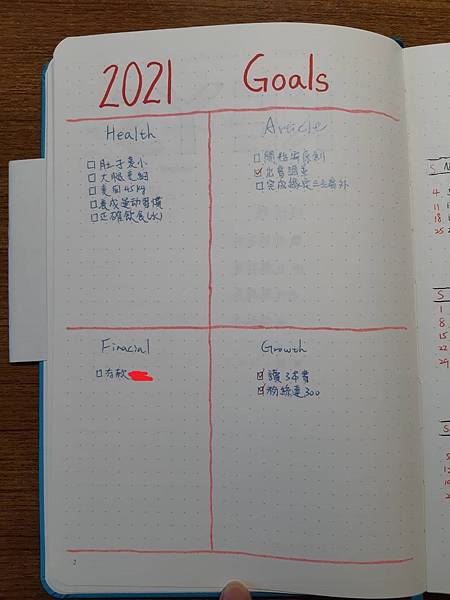 2021 Goals
Health
□ 肚子變小
□ 大腿變細
□ 變回45kg
□ 養成運動習慣
□ 正確飲食(水)
Article
□ 開始寫原創
☑ 出書
□ 完成
Finacial
□ 存款
Growth
☑ 讀3本書
☑ 粉絲達300
2
S
4
11
18
25
S
1
8
15
22
29
S
5